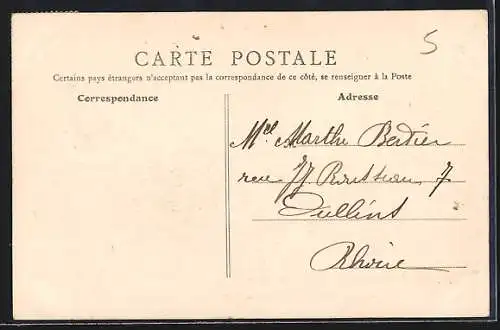 5
CARTE POSTALE
Certains pays étrangers n'acceptant pas la correspondance de ce côté, se renseigner à la Poste
Correspondance
Adresse
Mel Marthe Bertier
rue JJ Rousseau, 7
Oullins
Rhône